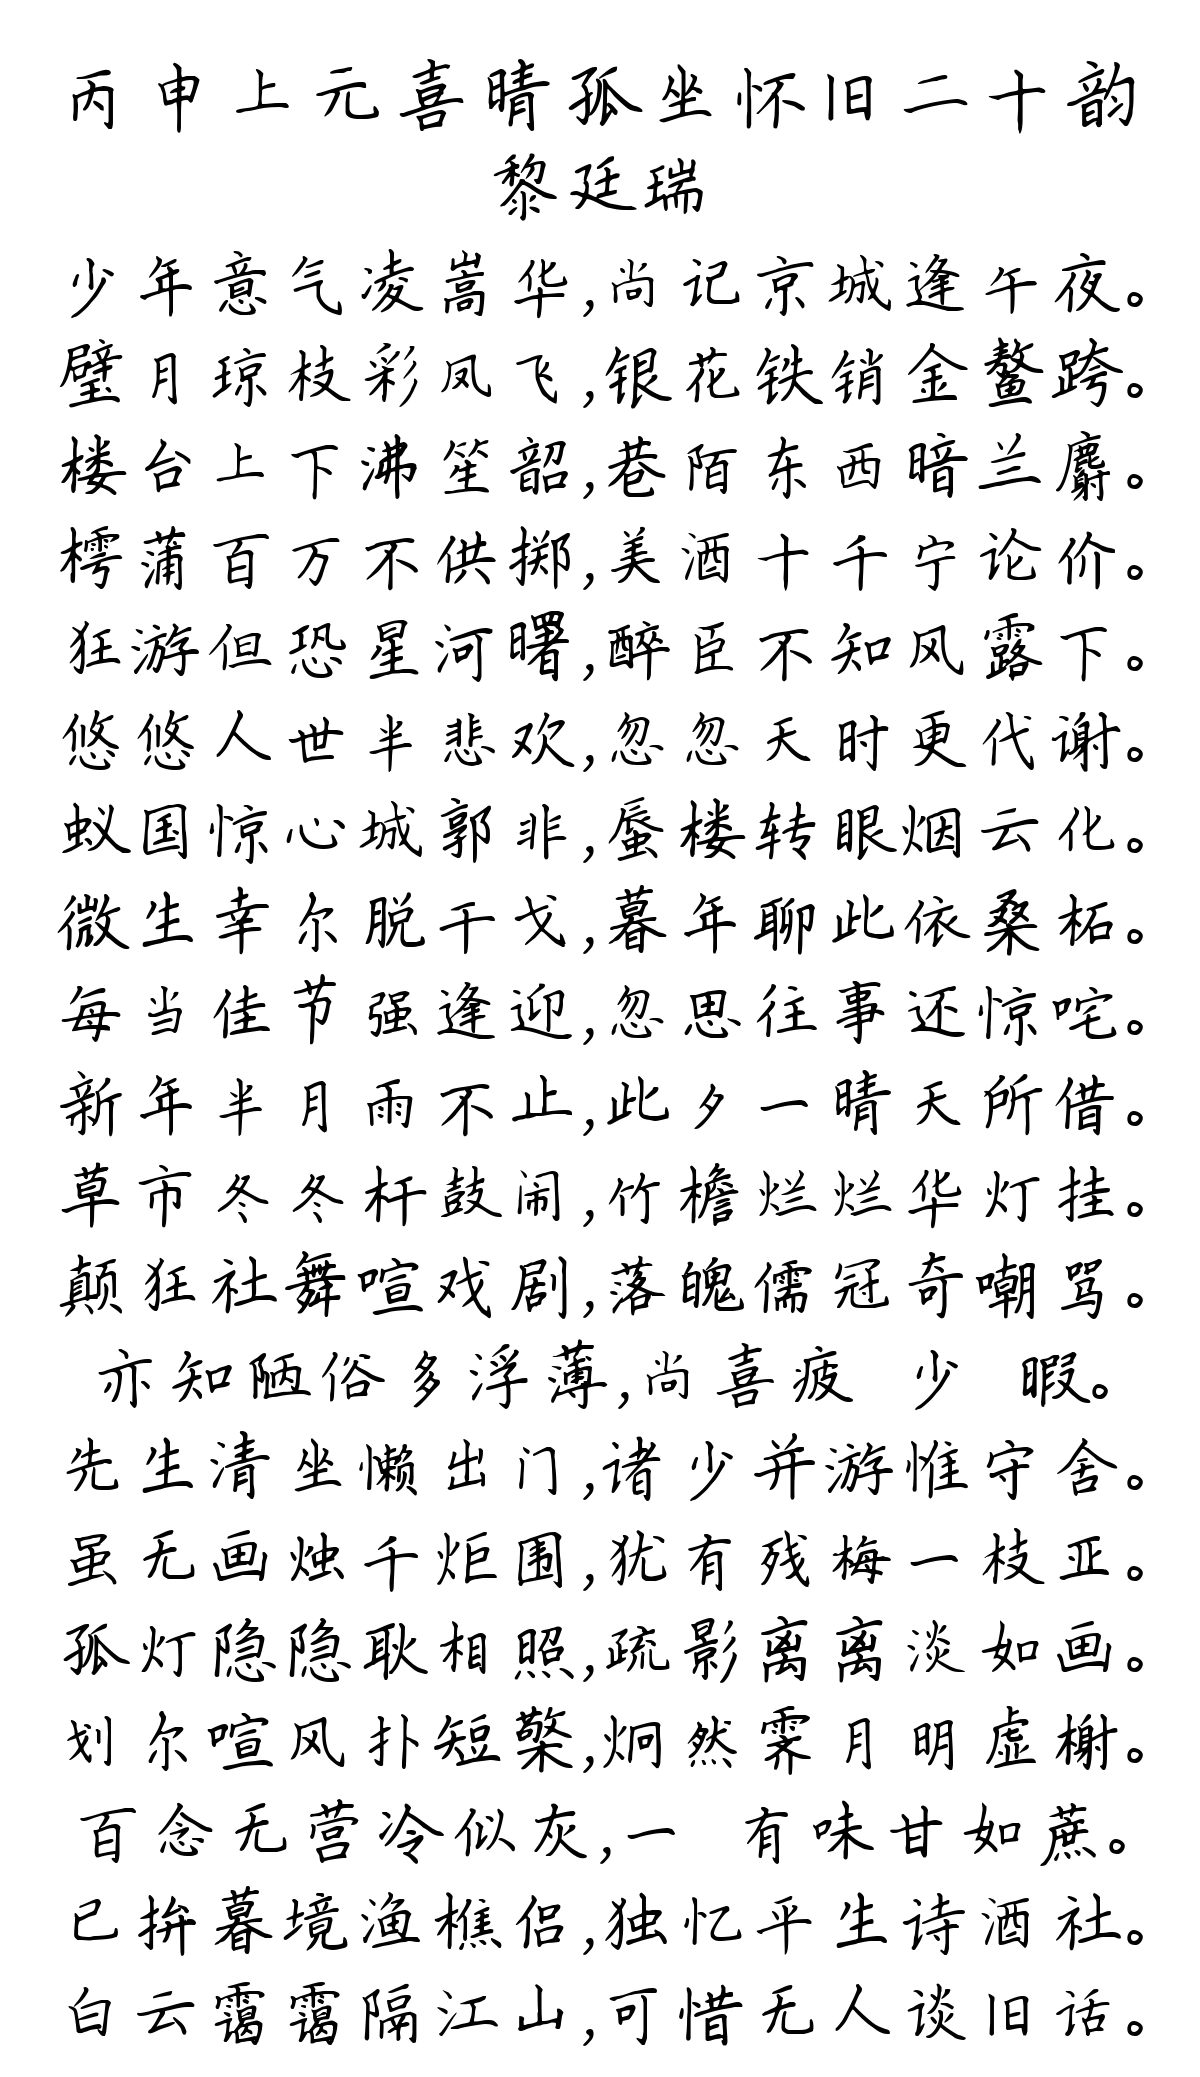 丙申上元喜晴孤坐怀旧二十韵
黎廷瑞
少年意气凌嵩华,尚记京城逢午夜。
璧月琼枝彩凤飞,银花铁销金鳌跨。
楼台上下沸笙韶,巷陌东西暗兰麝。
樗蒲百万不供掷,美酒十千宁论价。
狂游但恐星河曙,醉臣不知风露下。
悠悠人世半悲欢,忽忽天时更代谢。
蚁国惊心城郭非,蜃楼转眼烟云化。
微生幸尔脱干戈,暮年聊此依桑柘。
每当佳节强逢迎,忽思往事还惊咤。
新年半月雨不止,此夕一晴天所借。
草市冬冬杆鼓闹,竹檐烂烂华灯挂。
颠狂社舞喧戏剧,落魄儒冠奇嘲骂。
亦知陋俗多浮薄,尚喜疲 少 暇。
先生清坐懒出门,诸少并游惟守舍。
虽无画烛千炬围,犹有残梅一枝亚。
孤灯隐隐耿相照,疏影离离淡如画。
划尔喧风扑短檠,炯然霁月明虚榭。
百念无营冷似灰,一 有味甘如蔗。
已拚暮境渔樵侣,独忆平生诗酒社。
白云霭霭隔江山,可惜无人谈旧话。